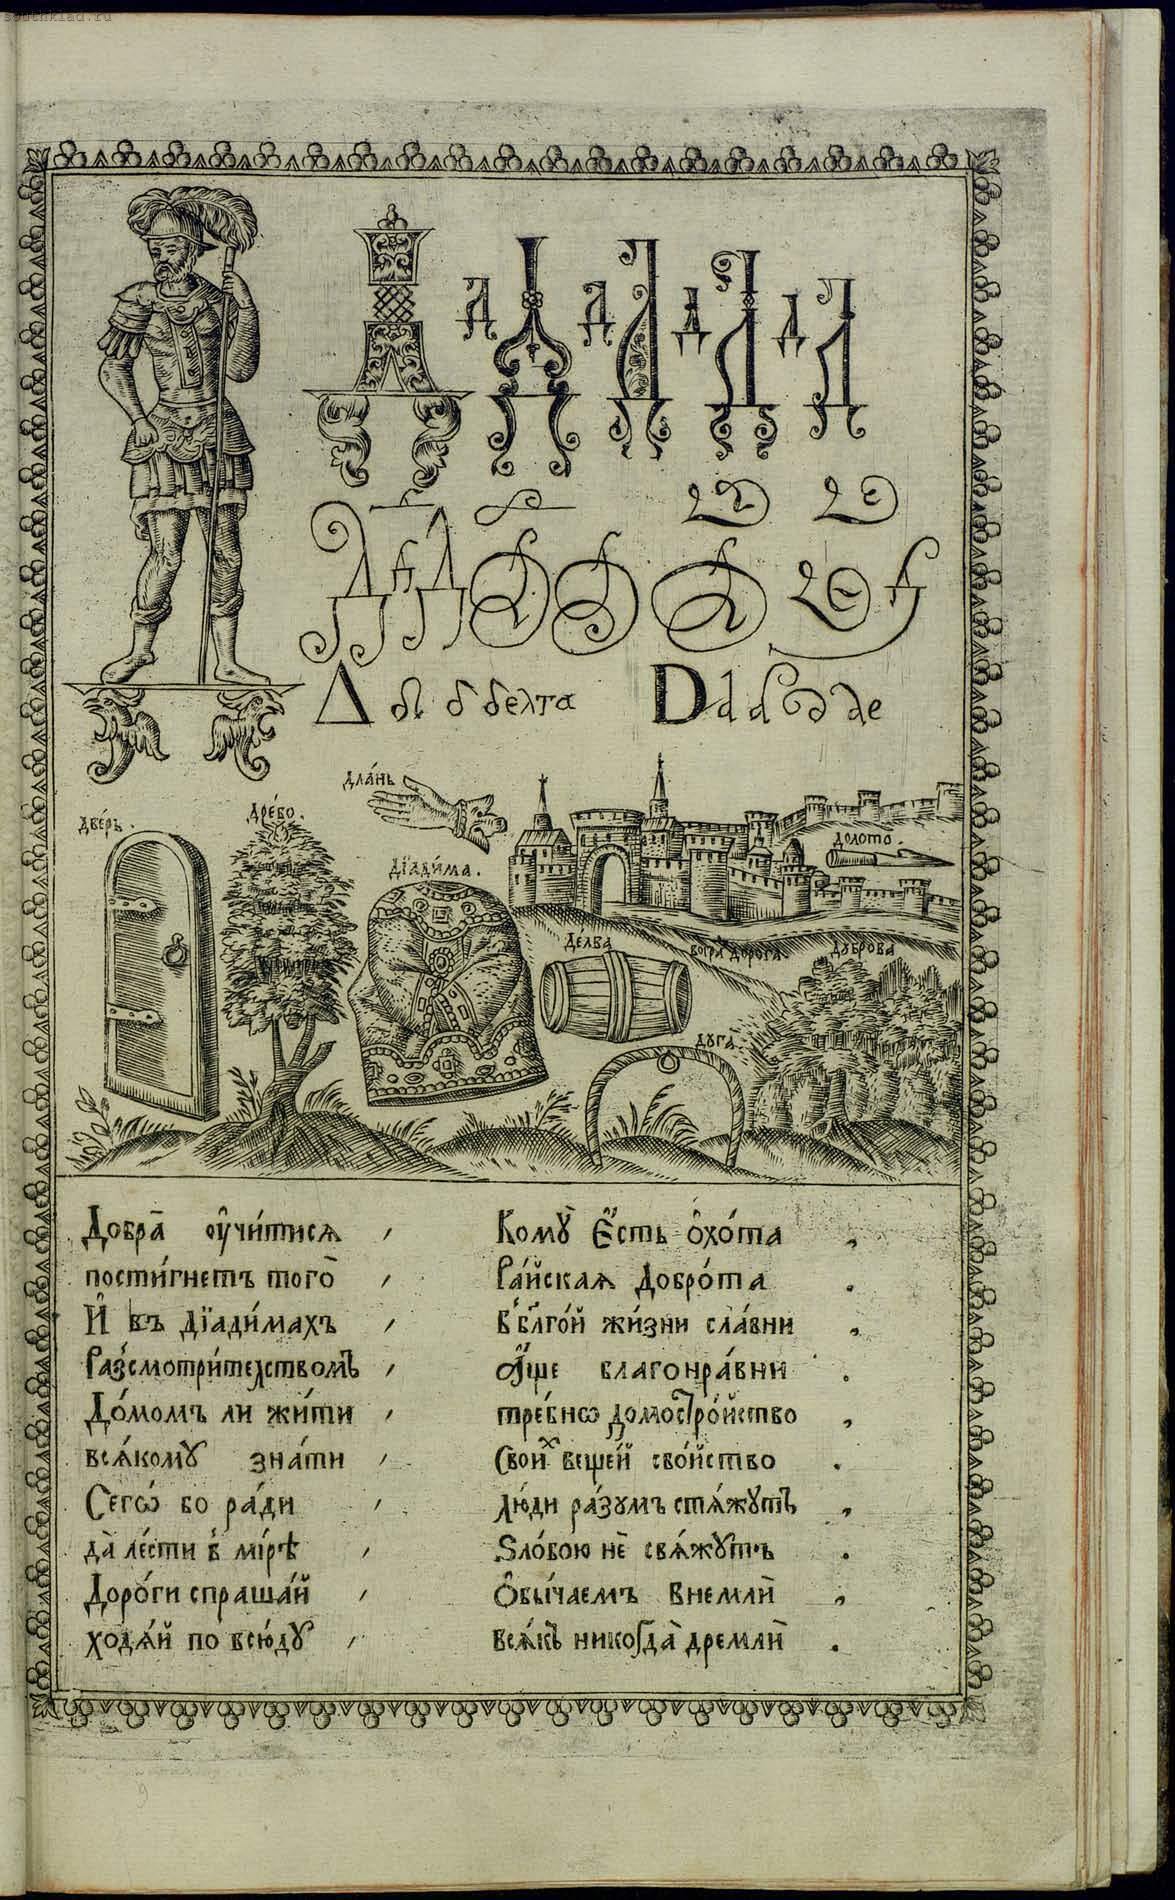 southklad.ru
Δ δ δ δελτα D d d de
дла́нь
две́рь.
дре́во.
дїади́ма.
долото.
де́лва
вогра́ дорога
дуброва
дуга
Добра̀ ᲂу҆чи́тисѧ , Комꙋ̀ є҆́сть ѻ҆хо́та ,
пости́гнетъ того̀ , Ра́йскаѧ доброта .
И҆ въ дїади́махъ , в бл҃го́й жи́зни сла́вни ,
Разсмотри́телствомъ , а҆́ще благонра́вни .
До́момъ ли жи́ти , тре́бнѡ домостро́йство ,
всѧ́комꙋ зна́ти , Свои́х веще́й сво́йство .
Сегѡ̀ бо ра́ди , лю́ди ра́зумъ стѧ́жутъ ,
да̀ ле́сти в мі́рѣ , Ѕло́бою нѐ свѧ́жутъ .
Доро́ги спраша́й , Ѻ҆бы́чаемъ внемлѝ ,
ходѧ́й по всю́дꙋ , всѧ́къ никогда̀ дремлѝ .
9